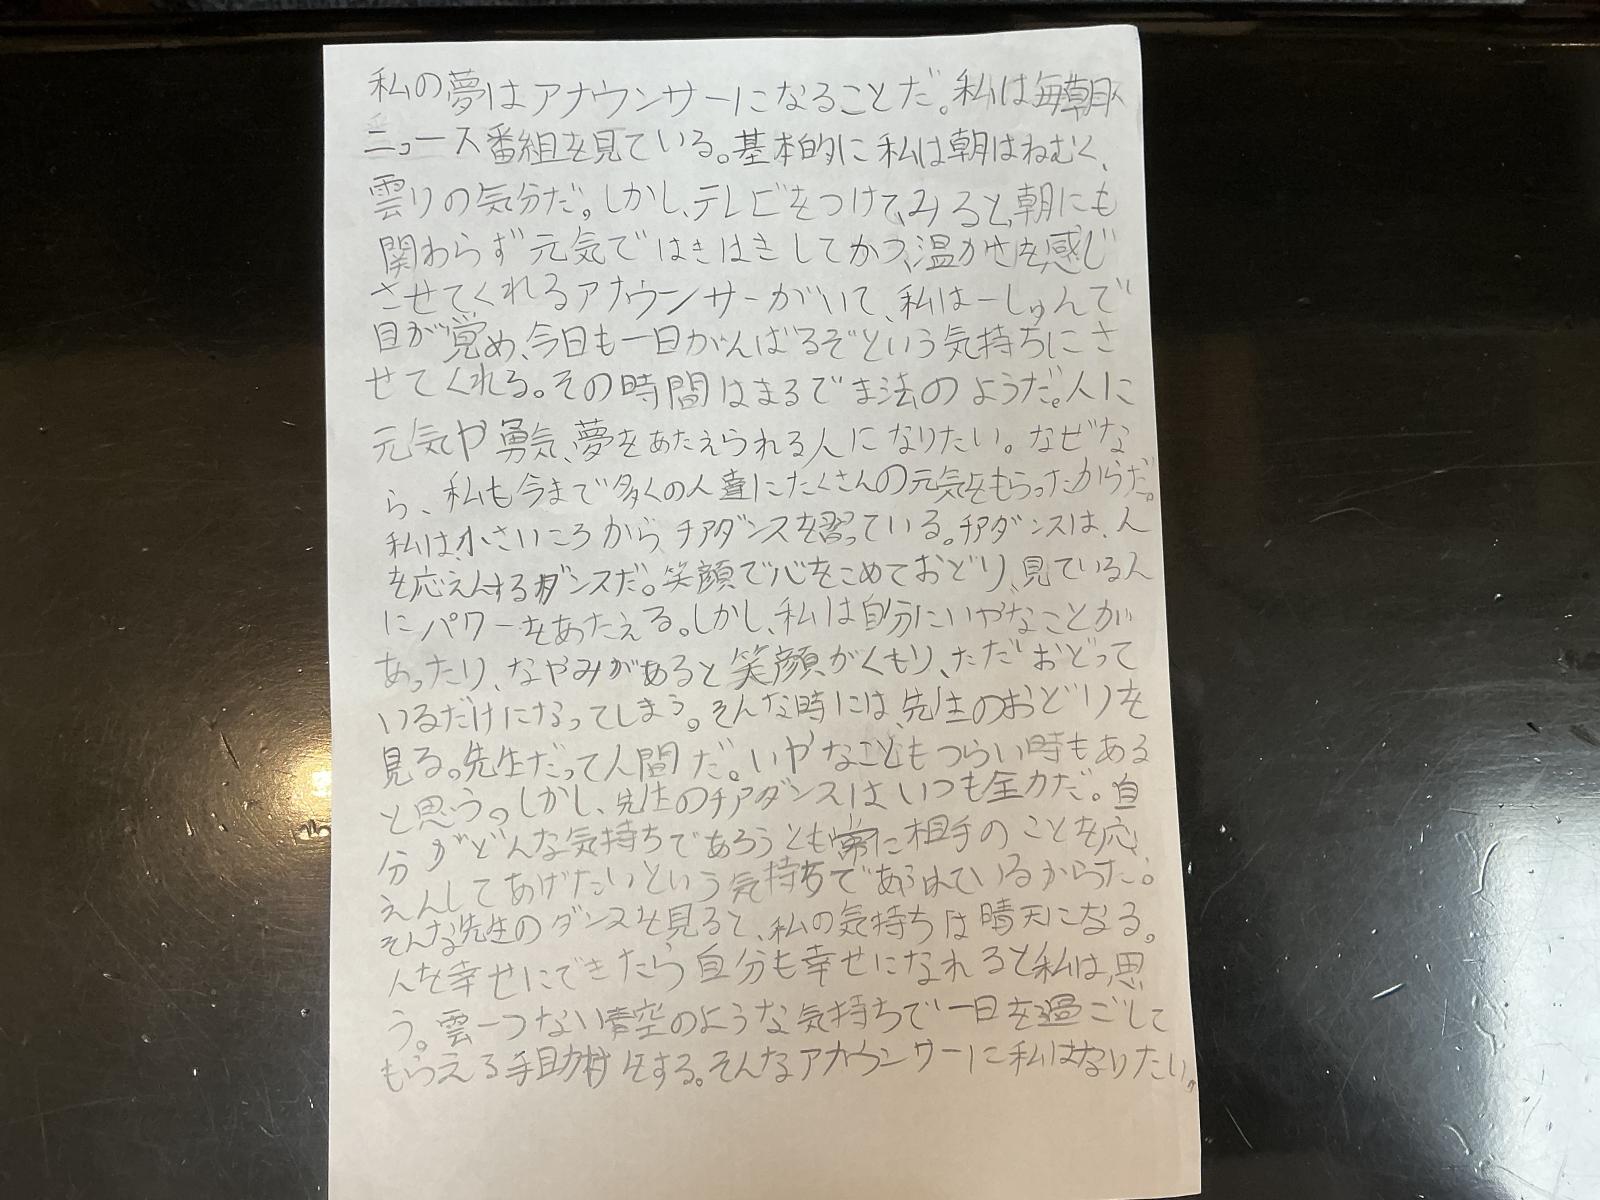 私の夢はアナウンサーになることだ。私は毎朝、
ニュース番組を見ている。基本的に私は朝はねむく、
雲りの気分だ。しかし、テレビをつけてみると、朝にも
関わらず元気ではきはきしてかつ、温かさを感じ
させてくれるアナウンサーがいて、私は一しゅんで
目が覚め、今日も一日がんばるぞという気持ちにさ
せてくれる。その時間はまるでま法のようだ。人に
元気や勇気、夢をあたえられる人になりたい。なぜな
ら、私も今まで多くの人達にたくさんの元気をもらったからだ。
私は、小さいころからチアダンスを習っている。チアダンスは、人
を応えんするダンスだ。笑顔で心をこめておどり、見ている人
にパワーをあたえる。しかし、私は自分にいやなことが
あったり、なやみがあると笑顔がくもり、ただおどって
いるだけになってしまう。そんな時には先生のおどりを
見る。先生だって人間だ。いやなこともつらい時もある
と思う。しかし、先生のチアダンスはいつも全力だ。自
分がどんな気持ちであろうとも常に相手のことを応
えんしてあげたいという気持ちであふれているからだ。
そんな先生のダンスを見ると、私の気持ちは晴天になる。
人を幸せにできたら自分も幸せになれると私は、思
う。雲一つない青空のような気持ちで一日を過ごして
もらえる手助けをする。そんなアナウンサーに私はなりたい。